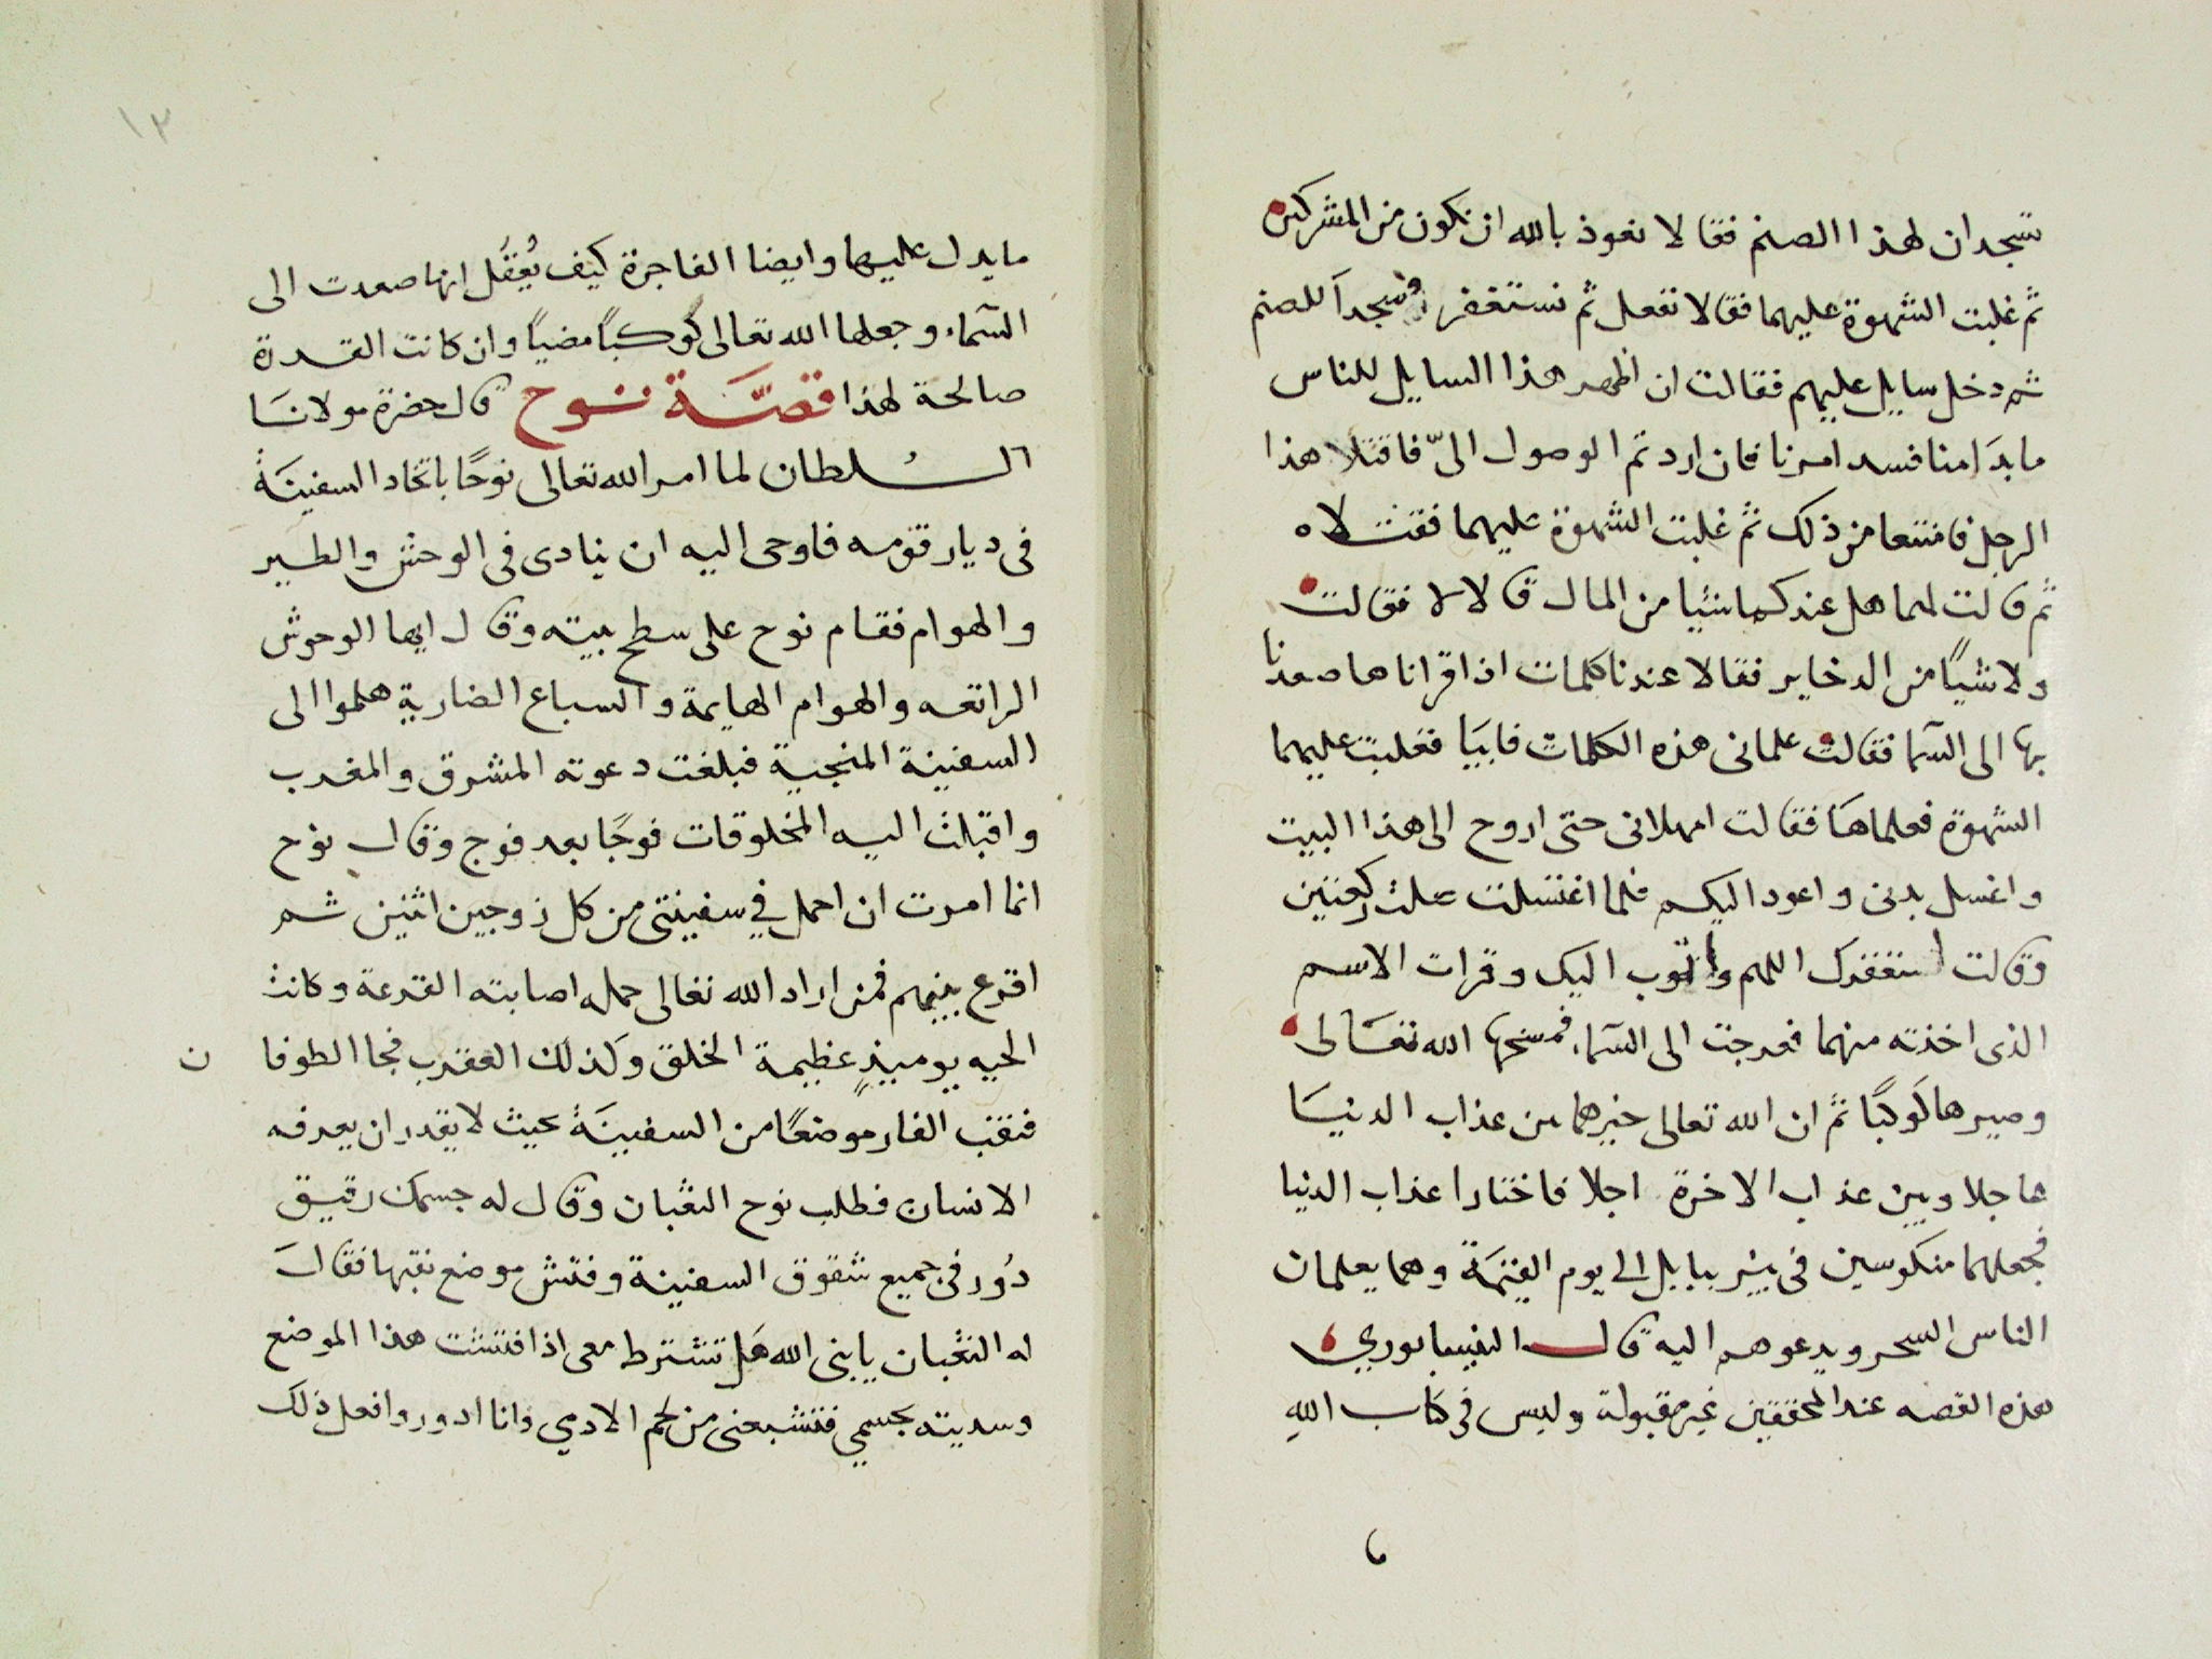 تسجدان لهذا الصنم فقالا نعوذ بالله ان نكون من المشركين
ثم غلبت الشهوة عليهما فقالا نفعل ثم نستغفر وسجدا للصنم
ثم دخل سايل عليهم فقالت ان اظهر هذا السايل للناس
ما بدَا منا فسد امرنا فان اردتم الوصول الىّ فاقتلا هذا
الرجل فامتنعا من ذلك ثم غلبت الشهوة عليهما فقتلاه
ثم قالت لهما هل عندكما شيا من المال قالا لا فقالت
ولا شيًا من الدخاير فقالا عندنا كلمات اذا قراناها صعدنا
بها الى السما فقالت علمانى هذه الكلمات فابيَا فغلبت عليهما
الشهوة فعلماهَا فقالت امهلانى حتى اروح الى هذا البيت
واغسل بدنى واعود اليكم فلما اغتسلت صلت ركعتين
وقالت استغفرك اللهم واتوب اليك وقرات الاسم
الذى اخذته منهما فعرجت الى السماء فمسخها الله تعَالى
وصيرها كوكبًا ثم ان الله تعالى خيرهما من عذاب الدنيَا
عاجلا وبين عذاب الاخرة اجلا فاختارا عذاب الدنيا
فجعلهما منكوسين فى بير ببابل الى يوم القيٰمَة وهما يعلمان
الناس السحر ويدعوهم اليه قال النيسابوري
هذه القصه عند المحققين غير مقبولة وليس فى كتاب اللهِ
ما
١٣
ما يدل عليها وايضا الفاجرة كيف يُعقَل انها صعدت الى
السمآء وجعلها الله تعالى كوكبًا مضيًا وان كانت القدرة
صالحة لهذا قصَّة نوح قال حضرة مولانَا
السُلطان لما امر الله تعالى نوحًا باتخاد السفينَة
فى ديار قومه فاوحى اليه ان ينادى فى الوحش والطير
والهوام فقام نوح على سطح بيته وقال ايها الوحوش
الراتعه والهوام الهايمة والسباع الضارية هلموا الى
السفينة المنجية فبلغت دعوته المشرق والمغرب
واقبلت اليه المخلوقات فوجًا بعد فوج وقال نوح
انما امرت ان احمل في سفينتى من كل زوجين اثنين ثم
اقرع بينهم فمن اراد الله تعالى حمله اصابته القرعة وكانت
الحيه يوميذٍ عظيمة الخلق وكذلك العقرب فجا الطوفا ن
فنقب الفار موضعًا من السفينَة بحيث لا يقدر ان يعرفه
الانسان فطلب نوح الثعبان وقال له جسمك رقيق
دُور فى جميع شقوق السفينة وفتش موضع نقبها فقالَ
له الثعبان يا بنى الله هَل تشترط معى اذا فتشت هذا الموضع
وسديته بجسمي فتشبعنى من لحم الادمي وانا ادور وافعل ذلك